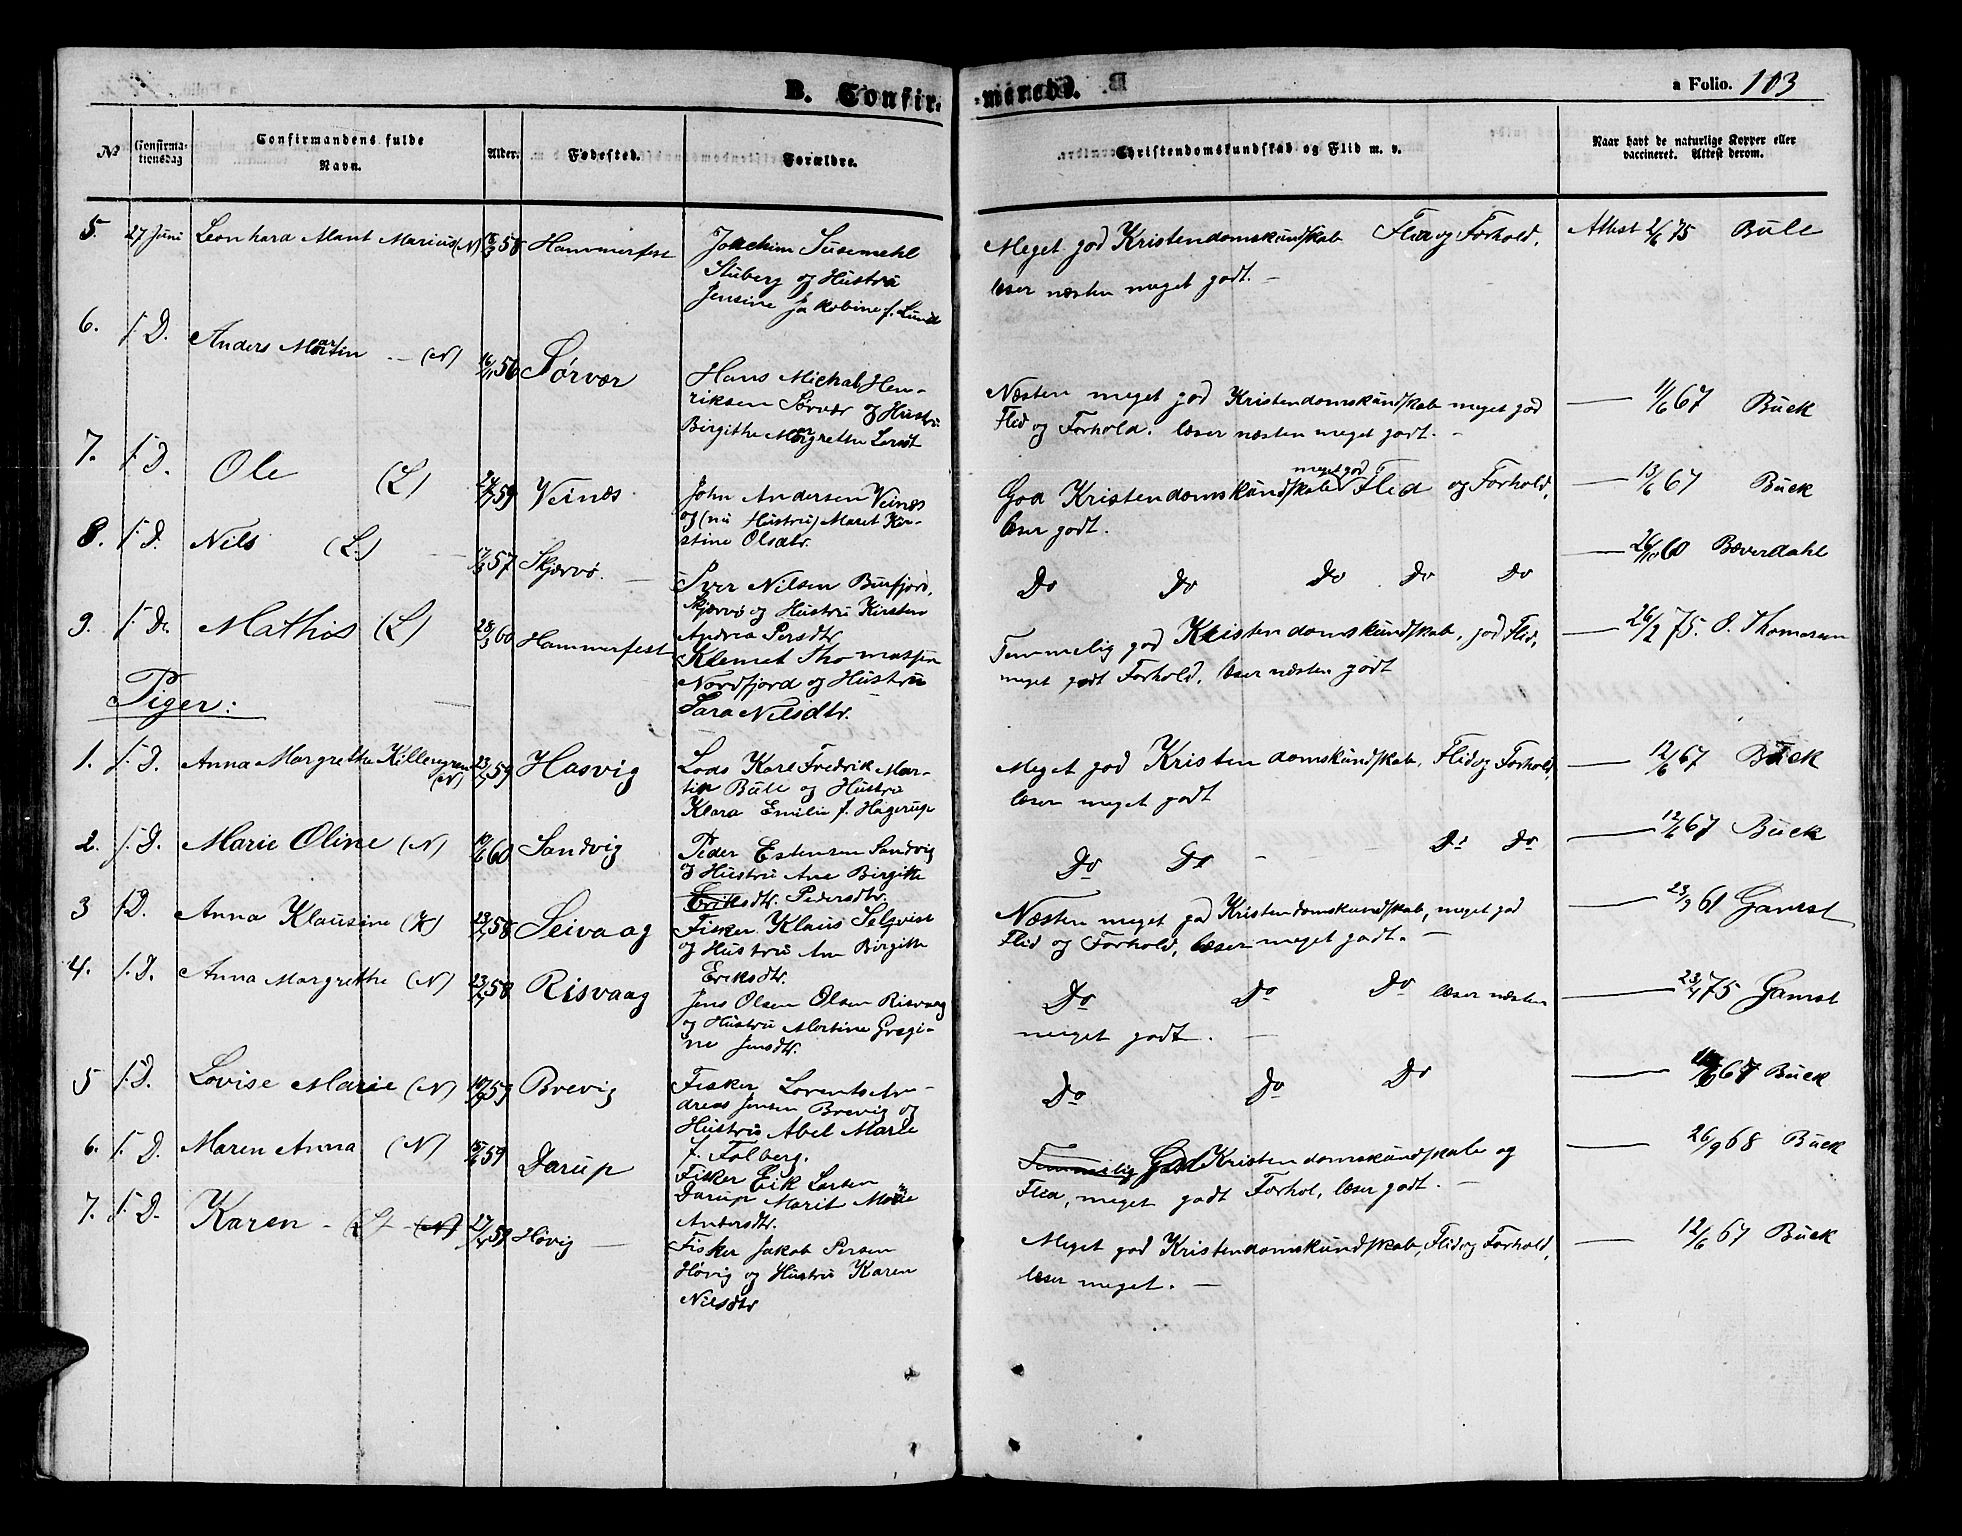 B. Confirmerede.
a Folio. 103
No
Confirmationsdag
Confirmandens fulde Navn.
Alder.
Fødested.
Forældre.
Christendomskundskab og Flid m. v.
Naar havt de naturlige Kopper eller vaccineret. Attest derom.
5. 27 Juni Leonhard Mant Marius (N) 58 Hammerfest
Joachim Susemehl
Stuberg og Hustru
Jensine Jakobine f. Lund
Meget god Kristendomskundskab Flid og Forhold,
læser næsten meget godt. —
Attest 2/6 75 Bull
6. f. D. Anders Martin — (N) 16/11 56 Sørvær
Hans Michal Hen-
riksen Sørvær og Hustru
Birgithe Margrethe
Næsten meget god Kristendomskundskab meget god
Flid og Forhold. læser næsten meget godt. —
— 11/6 67 Buck
7. f. D. Ole (L) 59 Veinæs
John Andersen Veinæs
og (nu Hustru) Maret Kir-
stine Olsdtr.
God Kristendomskundskab meget god Flid og Forhold,
læser godt.
— 13/6 67 Buck
8. f. D. Nils (L.) 57 Skjærvø. —
Iver Nilsen Burfjord,
Skjærvø og Hustru Kirsten
Andrea Persdtr.
Do Do Do Do Do
— 26/10 60 Bæverdahl
9. f. D. Mathis (L) 28/3 60 Hammerfest
Klemet Thomassen
Nordfjord og Hustru
Sara Nilsdtr.
Temmelig god Kristendomskundskab, god Flid,
meget godt Forhold, læser næsten godt
— 26/2 75. O. Thomassen
Piger:
1. f. D. Anna Margrethe Killengreen (N) 59 Hasvig
Lods Karl Fredrik Mar-
tin Bull og Hustru
Klara Emilie f. Hagerup
Meget god Kristendomskundskab, Flid og Forhold,
læser meget godt
12/6 67 Buck
2. f. D. Marie Oline (N) 60 Sandvig
Peder Estensen Sandvig
og Hustru Ane Birgitte
Eriksdtr. Pedersdtr.
Do Do — Do Do
— 12/6 67 Buck
3 f D. Anna Klausine 58 Seivaag
Fisker Klaus Selqvist
og Hustru An Birgitte
Eriksdtr.
Næsten meget god Kristendomskundskab, meget god
Flid og Forhold, læser meget godt. —
— 23/9 61 Gamst
4. f. D. Anna Margrethe (N) 58 Risvaag
Jens Olsen Olsen Risvaag
og Hustru Martine Gregi-
ne Jensdtr.
Do Do Do læser næsten
meget godt. —
— 23/4 75 Gamst
5 f. D. Lovise Marie (N) 59 Brevig
Fisker Lorents An-
dreas Jensen Brevig og
Hustru Abel Marie
f. Folberg.
Do Do Do
— 67 Buck
6. f. D. Maren Anna (N) 59 Darup
Fisker Erik Larsen
Darup Marit Marie
Andersdtr.
Temmelig God Kristendomskundskab og
Flid, meget godt Forhol, læser godt. —
— 26/9 68 Buck
7. f. D. Karen - (L) (N) 59 Høvig —
Fisker Jakob Persen
Høvig og Hustru Karen
Nilsdtr
Meget god Kristendomskundskab, Flid og Forhold,
læser meget. —
— 12/6 67 Buck